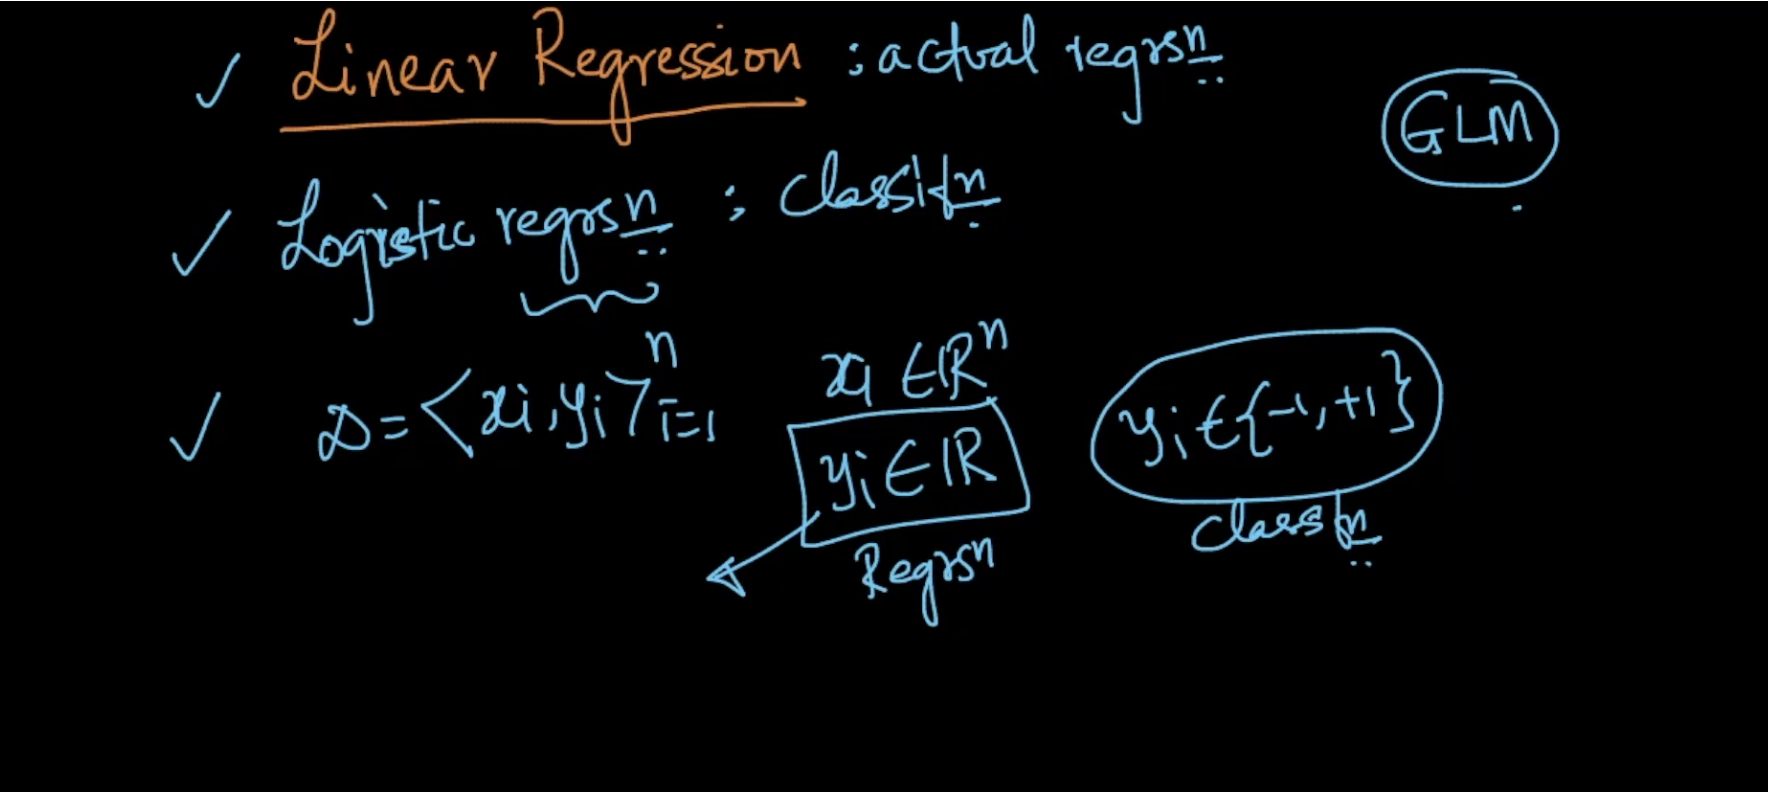 ✓ Linear Regression : actual regrsn
GLM
✓ Logistic regrsn : Classifn
✓ D = <xi, yi>ⁿi=1 xi ∈ ℝⁿ
yi ∈ ℝ yi ∈ {-1, +1}
Regrsn Classfn